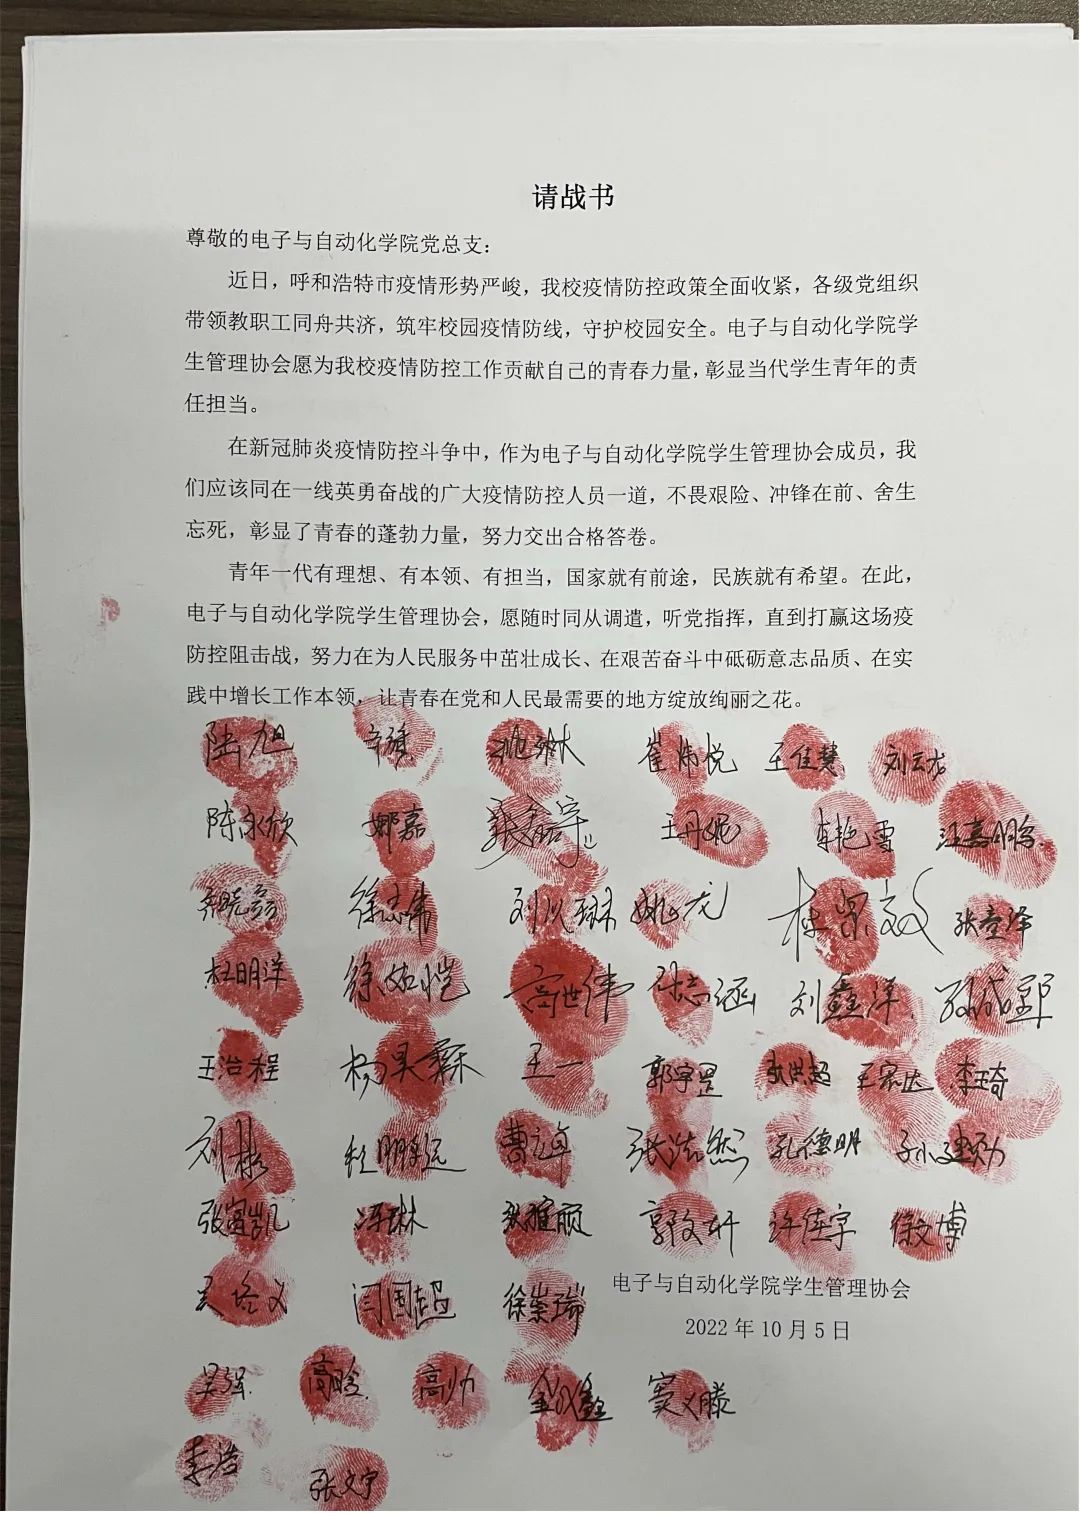 请战书
尊敬的电子与自动化学院党总支：
近日，呼和浩特市疫情形势严峻，我校疫情防控政策全面收紧，各级党组织
带领教职工同舟共济，筑牢校园疫情防线，守护校园安全。电子与自动化学院学
生管理协会愿为我校疫情防控工作贡献自己的青春力量，彰显当代学生青年的责
任担当。
在新冠肺炎疫情防控斗争中，作为电子与自动化学院学生管理协会成员，我
们应该同在一线英勇奋战的广大疫情防控人员一道，不畏艰险、冲锋在前、舍生
忘死，彰显了青春的蓬勃力量，努力交出合格答卷。
青年一代有理想、有本领、有担当，国家就有前途，民族就有希望。在此，
电子与自动化学院学生管理协会，愿随时同从调遣，听党指挥，直到打赢这场疫
防控阻击战，努力在为人民服务中茁壮成长、在艰苦奋斗中砥砺意志品质、在实
践中增长工作本领，让青春在党和人民最需要的地方绽放绚丽之花。
陆旭 崔炜悦 王佳慧 刘云龙
陈永欣 娜嘉 王丹妮 李艳雪 汪嘉鹏
徐志伟 刘以琳 姚龙 张童泽
杜明洋 徐如恺 高世伟 刘鑫洋
王治程 杨昊霖 王一 郭宇罡 王宏达 李玉奇
刘彬 杜鹏远 张浩然 孔德明 孙建勋
张富凯 冯琳 郭文轩 许佳宇 徐文博
吴培义 闫国超 徐崇瑞
电子与自动化学院学生管理协会
2022 年 10 月 5 日
吴强 高晗 高帅 窦义滕
李浩 张文宇